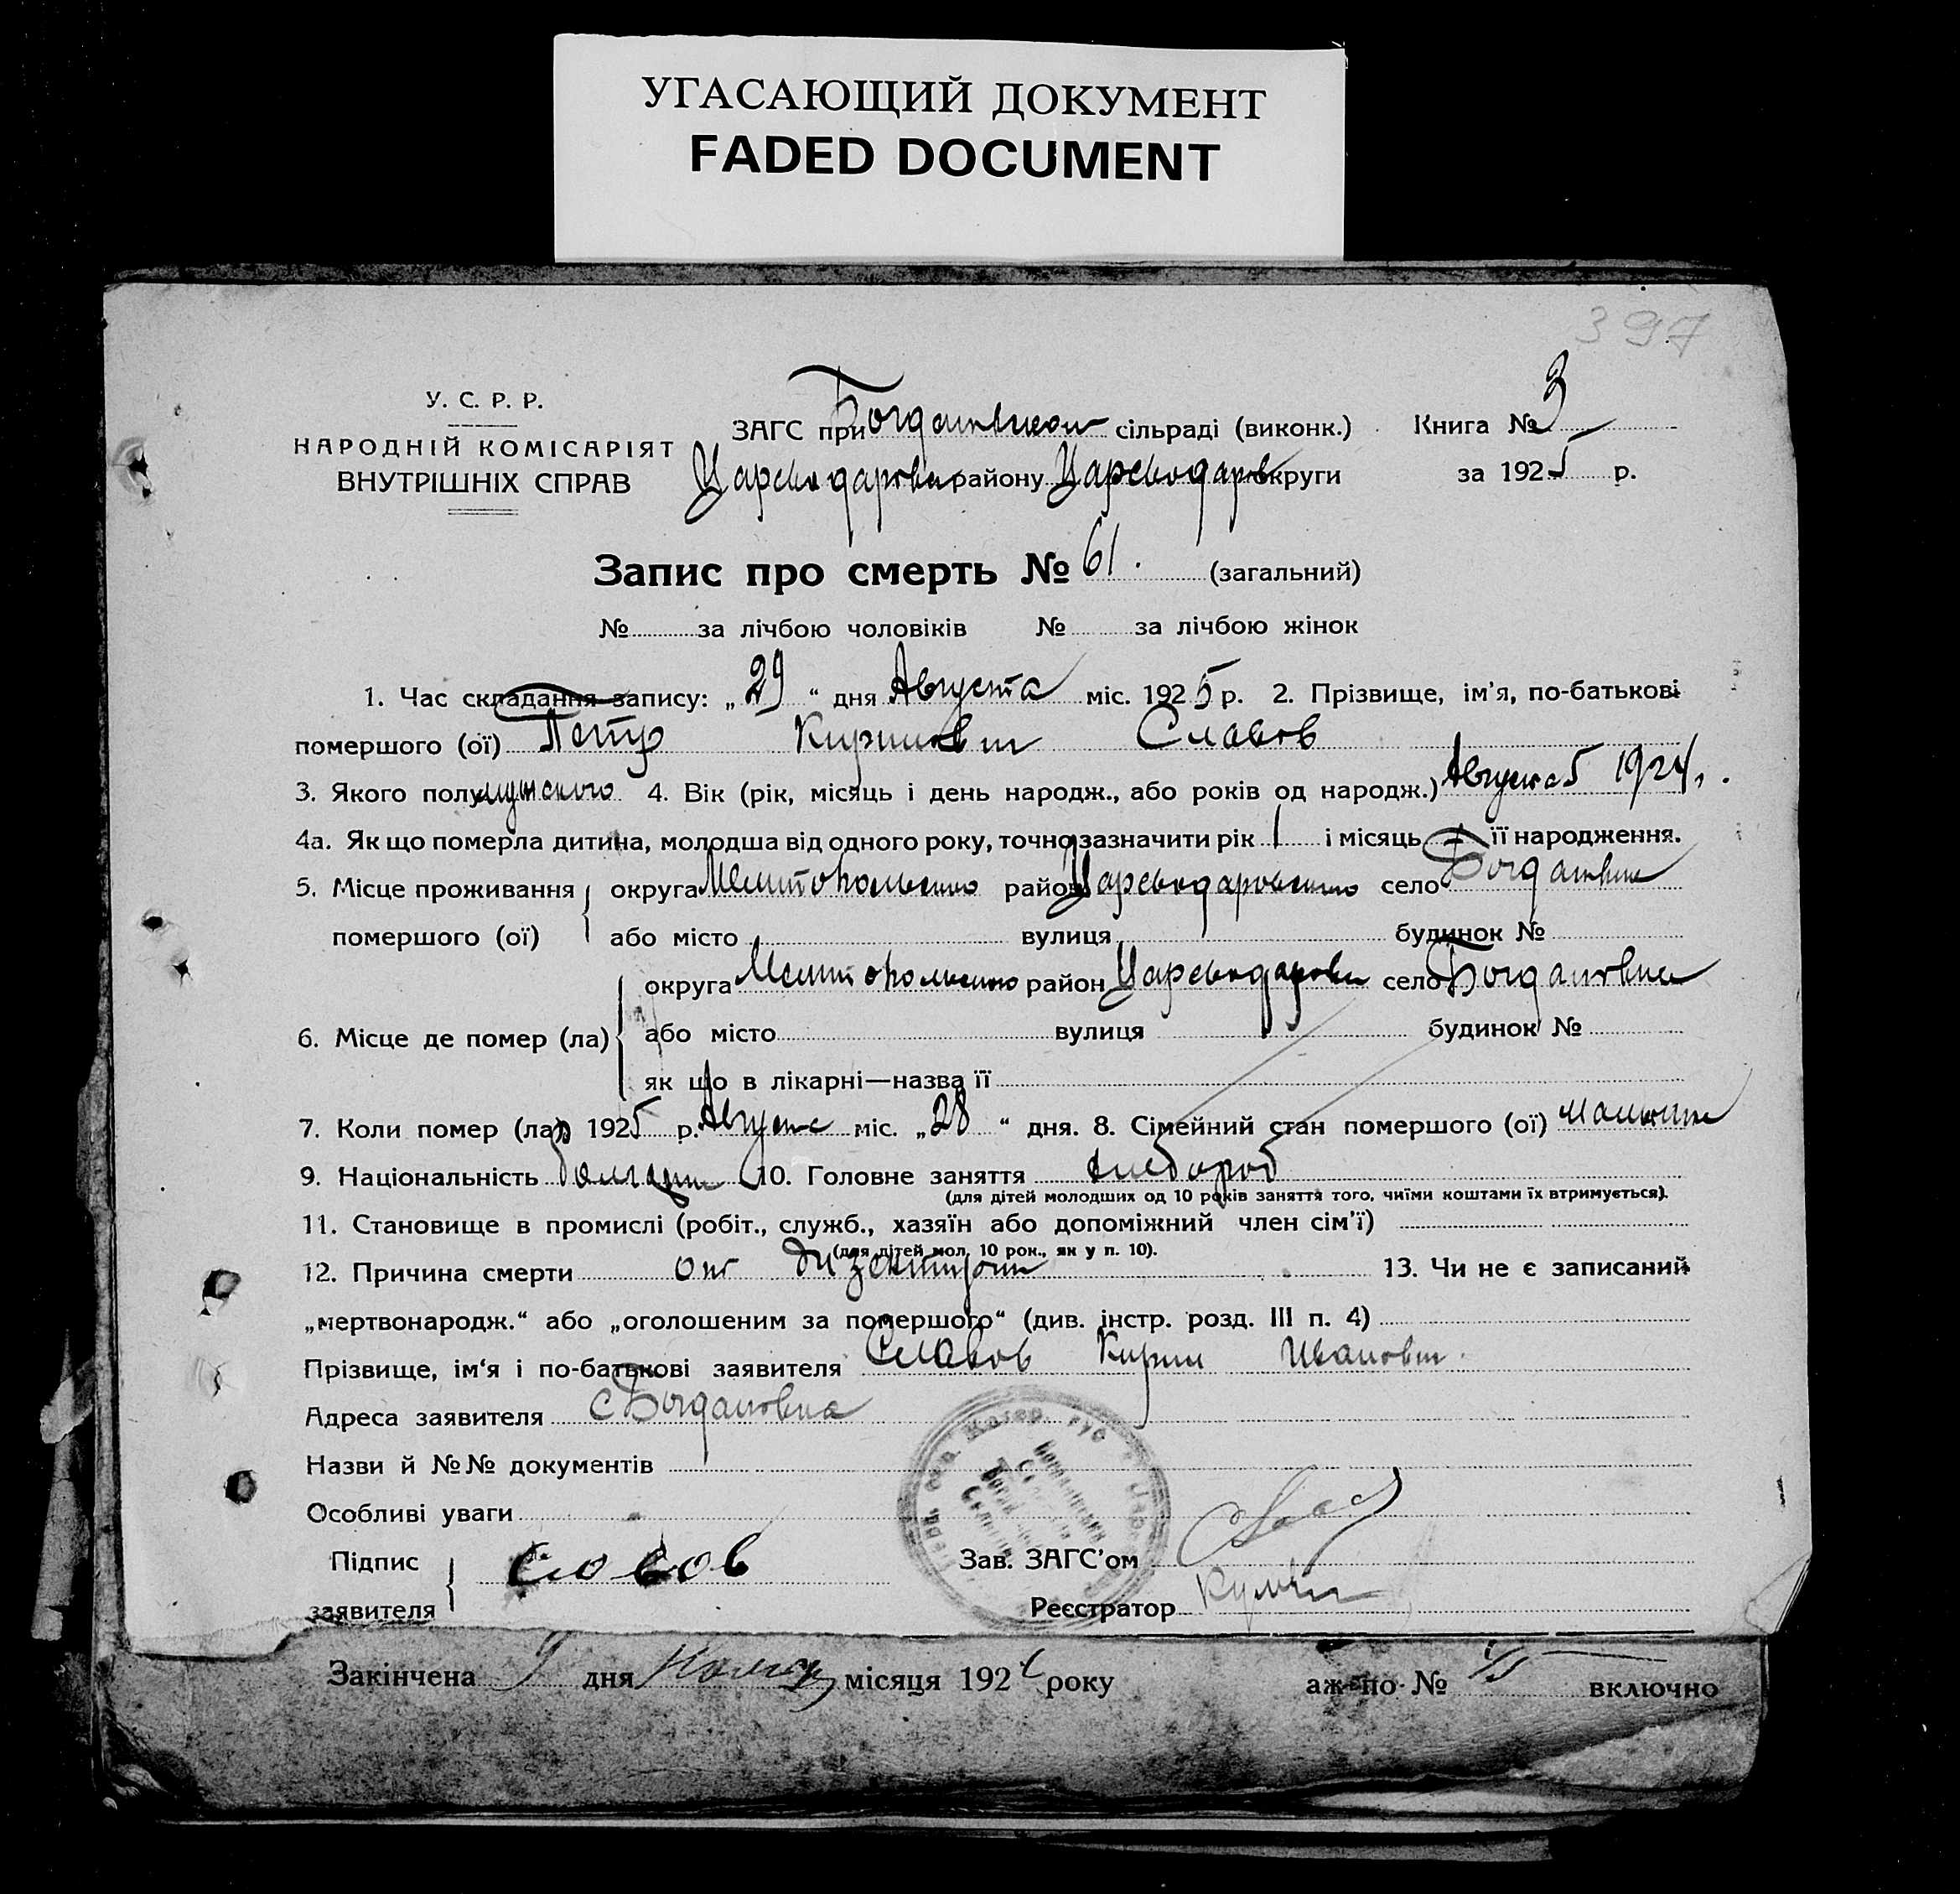 УГАСАЮЩИЙ ДОКУМЕНТ
FADED DOCUMENT
397
У. С. Р. Р.
НАРОДНІЙ КОМІСАРІЯТ
ВНУТРІШНІХ СПРАВ
ЗАГС при Богдановском сільраді (виконк.) Книга № 3
Цареводаровском району Цареводаров округи за 1925 р.
Запис про смерть № 61. (загальний)
№ за лічбою чоловіків № за лічбою жінок
1. Час складання запису: „29“ дня Августа міс. 1925 р. 2. Прізвище, ім'я, по-батькові
помершого (ої) Петр Кирилович Славов
3. Якого полу мужского 4. Вік (рік, місяць і день народж., або років од народж.) Август 5 1924.
4а. Як що померла дитина, молодша від одного року, точно зазначити рік 1 і місяць її народження.
5. Місце проживання округа Мелитопольского район Цареводаровского село Богдановка
помершого (ої) або місто вулиця будинок №
округа Мелитопольского район Цареводаровск село Богдановка
6. Місце де помер (ла) або місто вулиця будинок №
як що в лікарні—назва її
7. Коли помер (ла) 1925 р. Августа міс. „28“ дня. 8. Сімейний стан помершого (ої)
9. Національність болгарин 10. Головне заняття хлебороб
(для дітей молодших од 10 років заняття того, чиїми коштами їх втримується).
11. Становище в промислі (робіт., служб., хазяїн або допоміжний член сім'ї)
(для дітей мол. 10 рок., як у п. 10).
12. Причина смерти от дизентирии 13. Чи не є записаний
„мертвонародж.“ або „оголошеним за помершого“ (див. інстр. розд. III п. 4)
Прізвище, ім'я і по-батькові заявителя Славов Кирил Иванович.
Адреса заявителя с Богдановка
Назви й №№ документів
Особливі уваги
Підпис Славов Зав. ЗАГС'ом
заявителя Реєстратор
Закінчена дня місяця 192 року аж по № включно